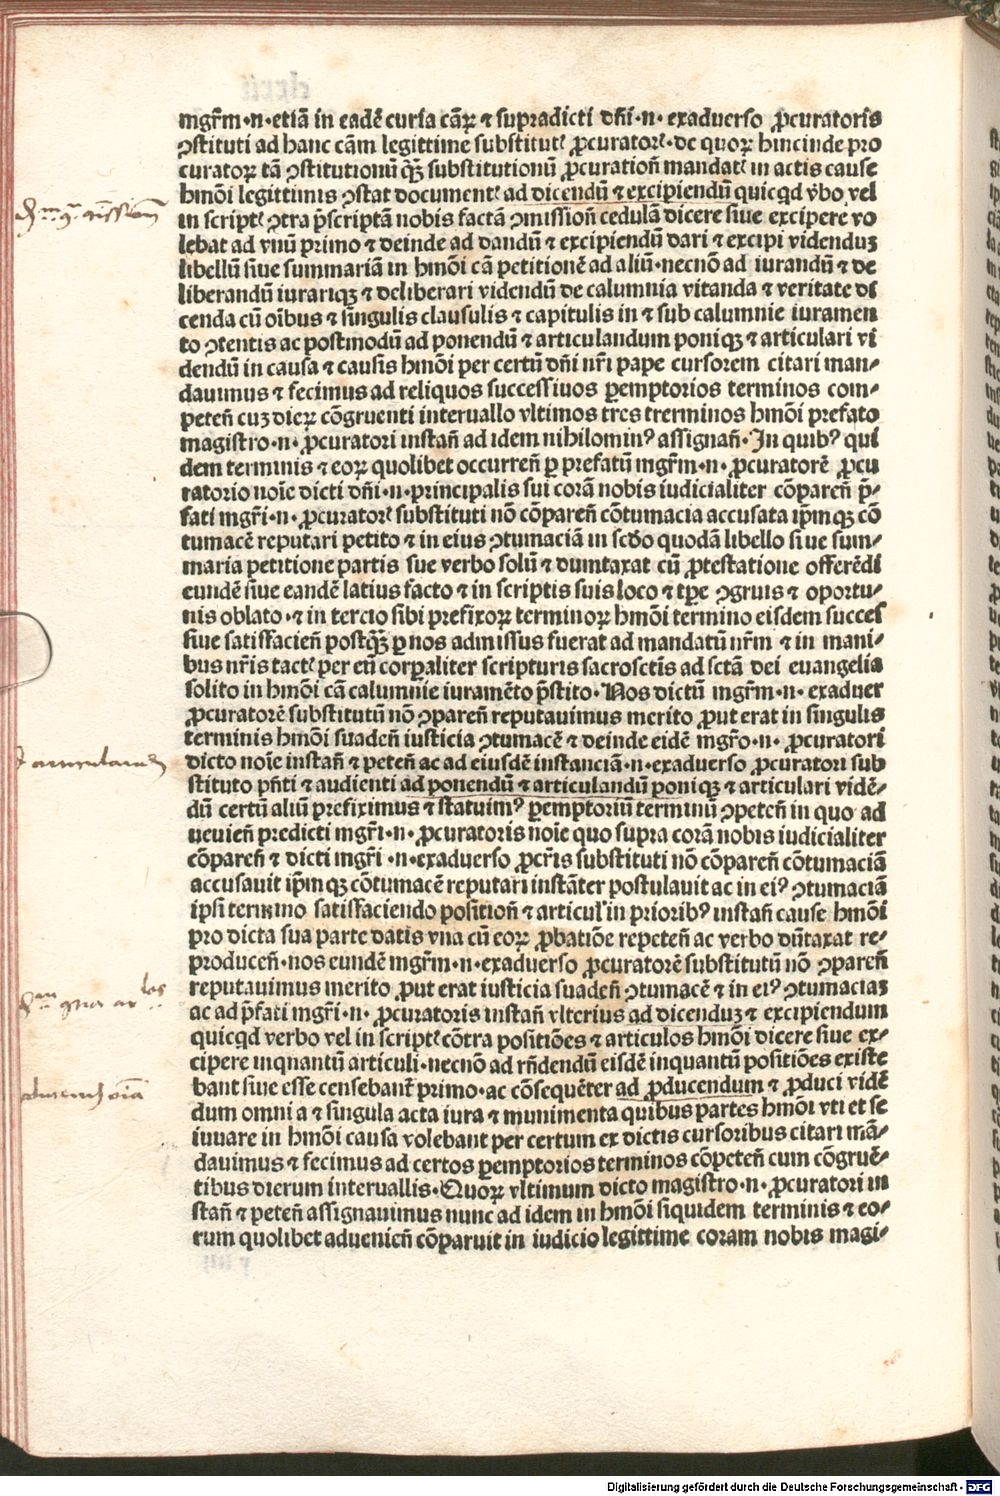 mgr̃m·n·etiã in eadẽ curia cãꝝ ⁊ supradicti dñi·n· exaduerso ꝓcuratoris
ꝯstituti ad hanc cãm legittime substitutꝭ ꝓcuratorꝭ·de quoꝝ hincinde pro
curatoꝝ tã ꝯstitutionũ qꝫ̃ substitutionũ ꝓcurationñ mandatꝭ in actis cause
hmõi legittimis ꝯstat documentꝭ ad dicendũ ⁊ excipiendũ quicqd v̾bo vel
in scriptꝭ ꝯtra p̃scriptã nobis factã ꝯmissioñ cedulã dicere siue excipere vo
lebat ad vnũ primo ⁊ deinde ad dandũ ⁊ excipiendũ dari ⁊ excipi videnduꝫ
libellũ siue summariã in hmõi cã petitionẽ ad aliũ·necnõ ad iurandũ ⁊ de
liberandũ iurariqꝫ ⁊ deliberari videndũ de calumnia vitanda ⁊ veritate di
cenda cũ oĩbus ⁊ singulis clausulis ⁊ capitulis in ⁊ sub calumnie iuramen
to ꝯtentis ac postmodũ ad ponendũ ⁊ articulandum poniqꝫ ⁊ articulari vi
dendũ in causa ⁊ causis hmõi per certũ dñi nr̃i pape cursorem citari man⸗
dauimus ⁊ fecimus ad reliquos successiuos ꝑemptorios terminos com⸗
peteñ cuꝫ dieꝝ cõgruenti interuallo vltimos tres trerminos hmõi prefato
magistro·n· ꝓcuratori instañ ad idem nihilominꝰ assignañ·In quibꝰ qui
dem terminis ⁊ eoꝝ quolibet occurreñ ꝑ prefatũ mgr̃m·n·ꝓcuratorẽ ꝓcu
ratorio noĩe dicti dñi·n·principalis sui corã nobis iudicialiter cõpareñ p̃⸗
fati mgr̃i·n· ꝓcuratorꝭ substituti nõ cõpareñ cõtumacia accusata ip̃mqꝫ cõ
tumacẽ reputari petito ⁊ in eius ꝯtumaciã in scd̃o quodã libello siue sum⸗
maria petitione partis sue verbo solũ ⁊ dumtaxat cũ ꝓtestatione offerẽdi
eundẽ siue eandẽ latius facto ⁊ in scriptis suis loco ⁊ tp̃e ꝯgruis ⁊ oportu⸗
nis oblato·⁊ in tercio sibi prefixoꝝ terminoꝝ hmõi termino eisdem succes
siue satisfacieñ postqꝫ̃ ꝑ nos admissus fuerat ad mandatũ nr̃m ⁊ in mani⸗
bus nr̃is tactꝭ per eũ corꝑaliter scripturis sacrosctĩs ad sctã dei euangelia
solito in hmõi cã calumnie iuramẽto p̃stito·Nos dictũ mgr̃m·n· exaduer
ꝓcuratorẽ substitutũ nõ ꝯpareñ reputauimus merito ꝓut erat in singulis
terminis hmõi suadeñ iusticia ꝯtumacẽ ⁊ deinde eidẽ mgr̃o·n· ꝓcuratori
dicto noĩe instañ ⁊ peteñ ac ad eiusdẽ instanciã·n·exaduerso ꝓcuratori sub
stituto pñti ⁊ audienti ad ponendũ ⁊ articulandũ poniqꝫ ⁊ articulari vidẽ⸗
dũ certũ aliũ prefiximus ⁊ statuimꝰ ꝑemptoriũ terminũ ꝯpeteñ in quo ad
ueuieñ predicti mgr̃i·n· ꝓcuratoris noĩe quo supra corã nobis iudicialiter
cõpareñ ⁊ dicti mgr̃i ·n·exaduerso ꝓcr̃is substituti nõ cõpareñ cõtumaciã
accusauit ip̃mqꝫ cõtumacẽ reputari instãter postulauit ac in eiꝰ ꝯtumaciã
ipsi termino satisfaciendo positioñ ⁊ articul̕ in prioribꝰ instañ cause hmõi
pro dicta sua parte datis vna cũ eoꝝ ꝓbatiõe repeteñ ac verbo dũtaxat re⸗
produceñ·nos eundẽ mgr̃m·n·exaduerso ꝓcuratorẽ substitutũ nõ ꝯpareñ
reputauimus merito ꝓut erat iusticia suadeñ ꝯtumacẽ ⁊ in eiꝰ ꝯtumaciaꝫ
ac ad p̃fati mgr̃i·n· ꝓcuratoris instañ vlterius ad dicenduꝫ ⁊ excipiendum
quicqd verbo vel in scriptꝭ cõtra positiões ⁊ articulos hmõi dicere siue ex⸗
cipere inquantũ articuli·necnõ ad rñdendũ eisdẽ inquantũ positiões existe
bant siue esse censebant̃ primo·ac cõsequẽter ad ꝓducendum ⁊ ꝓduci vidẽ
dum omnia ⁊ singula acta iura ⁊ munimenta quibus partes hmõi vti et se
iuuare in hmõi causa volebant per certum ex dictis cursoribus citari mã⸗
dauimus ⁊ fecimus ad certos ꝑemptorios terminos cõpeteñ cum cõgruẽ⸗
tibus dierum interuallis·Quoꝝ vltimum dicto magistro·n· ꝓcuratori in
stañ ⁊ peteñ assignauimus nunc ad idem in hmõi siquidem terminis ⁊ eo⸗
rum quolibet aduenieñ cõparuit in iudicio legittime coram nobis magi⸗
Digitalisierung gefördert durch die Deutsche Forschungsgemeinschaft - DFG